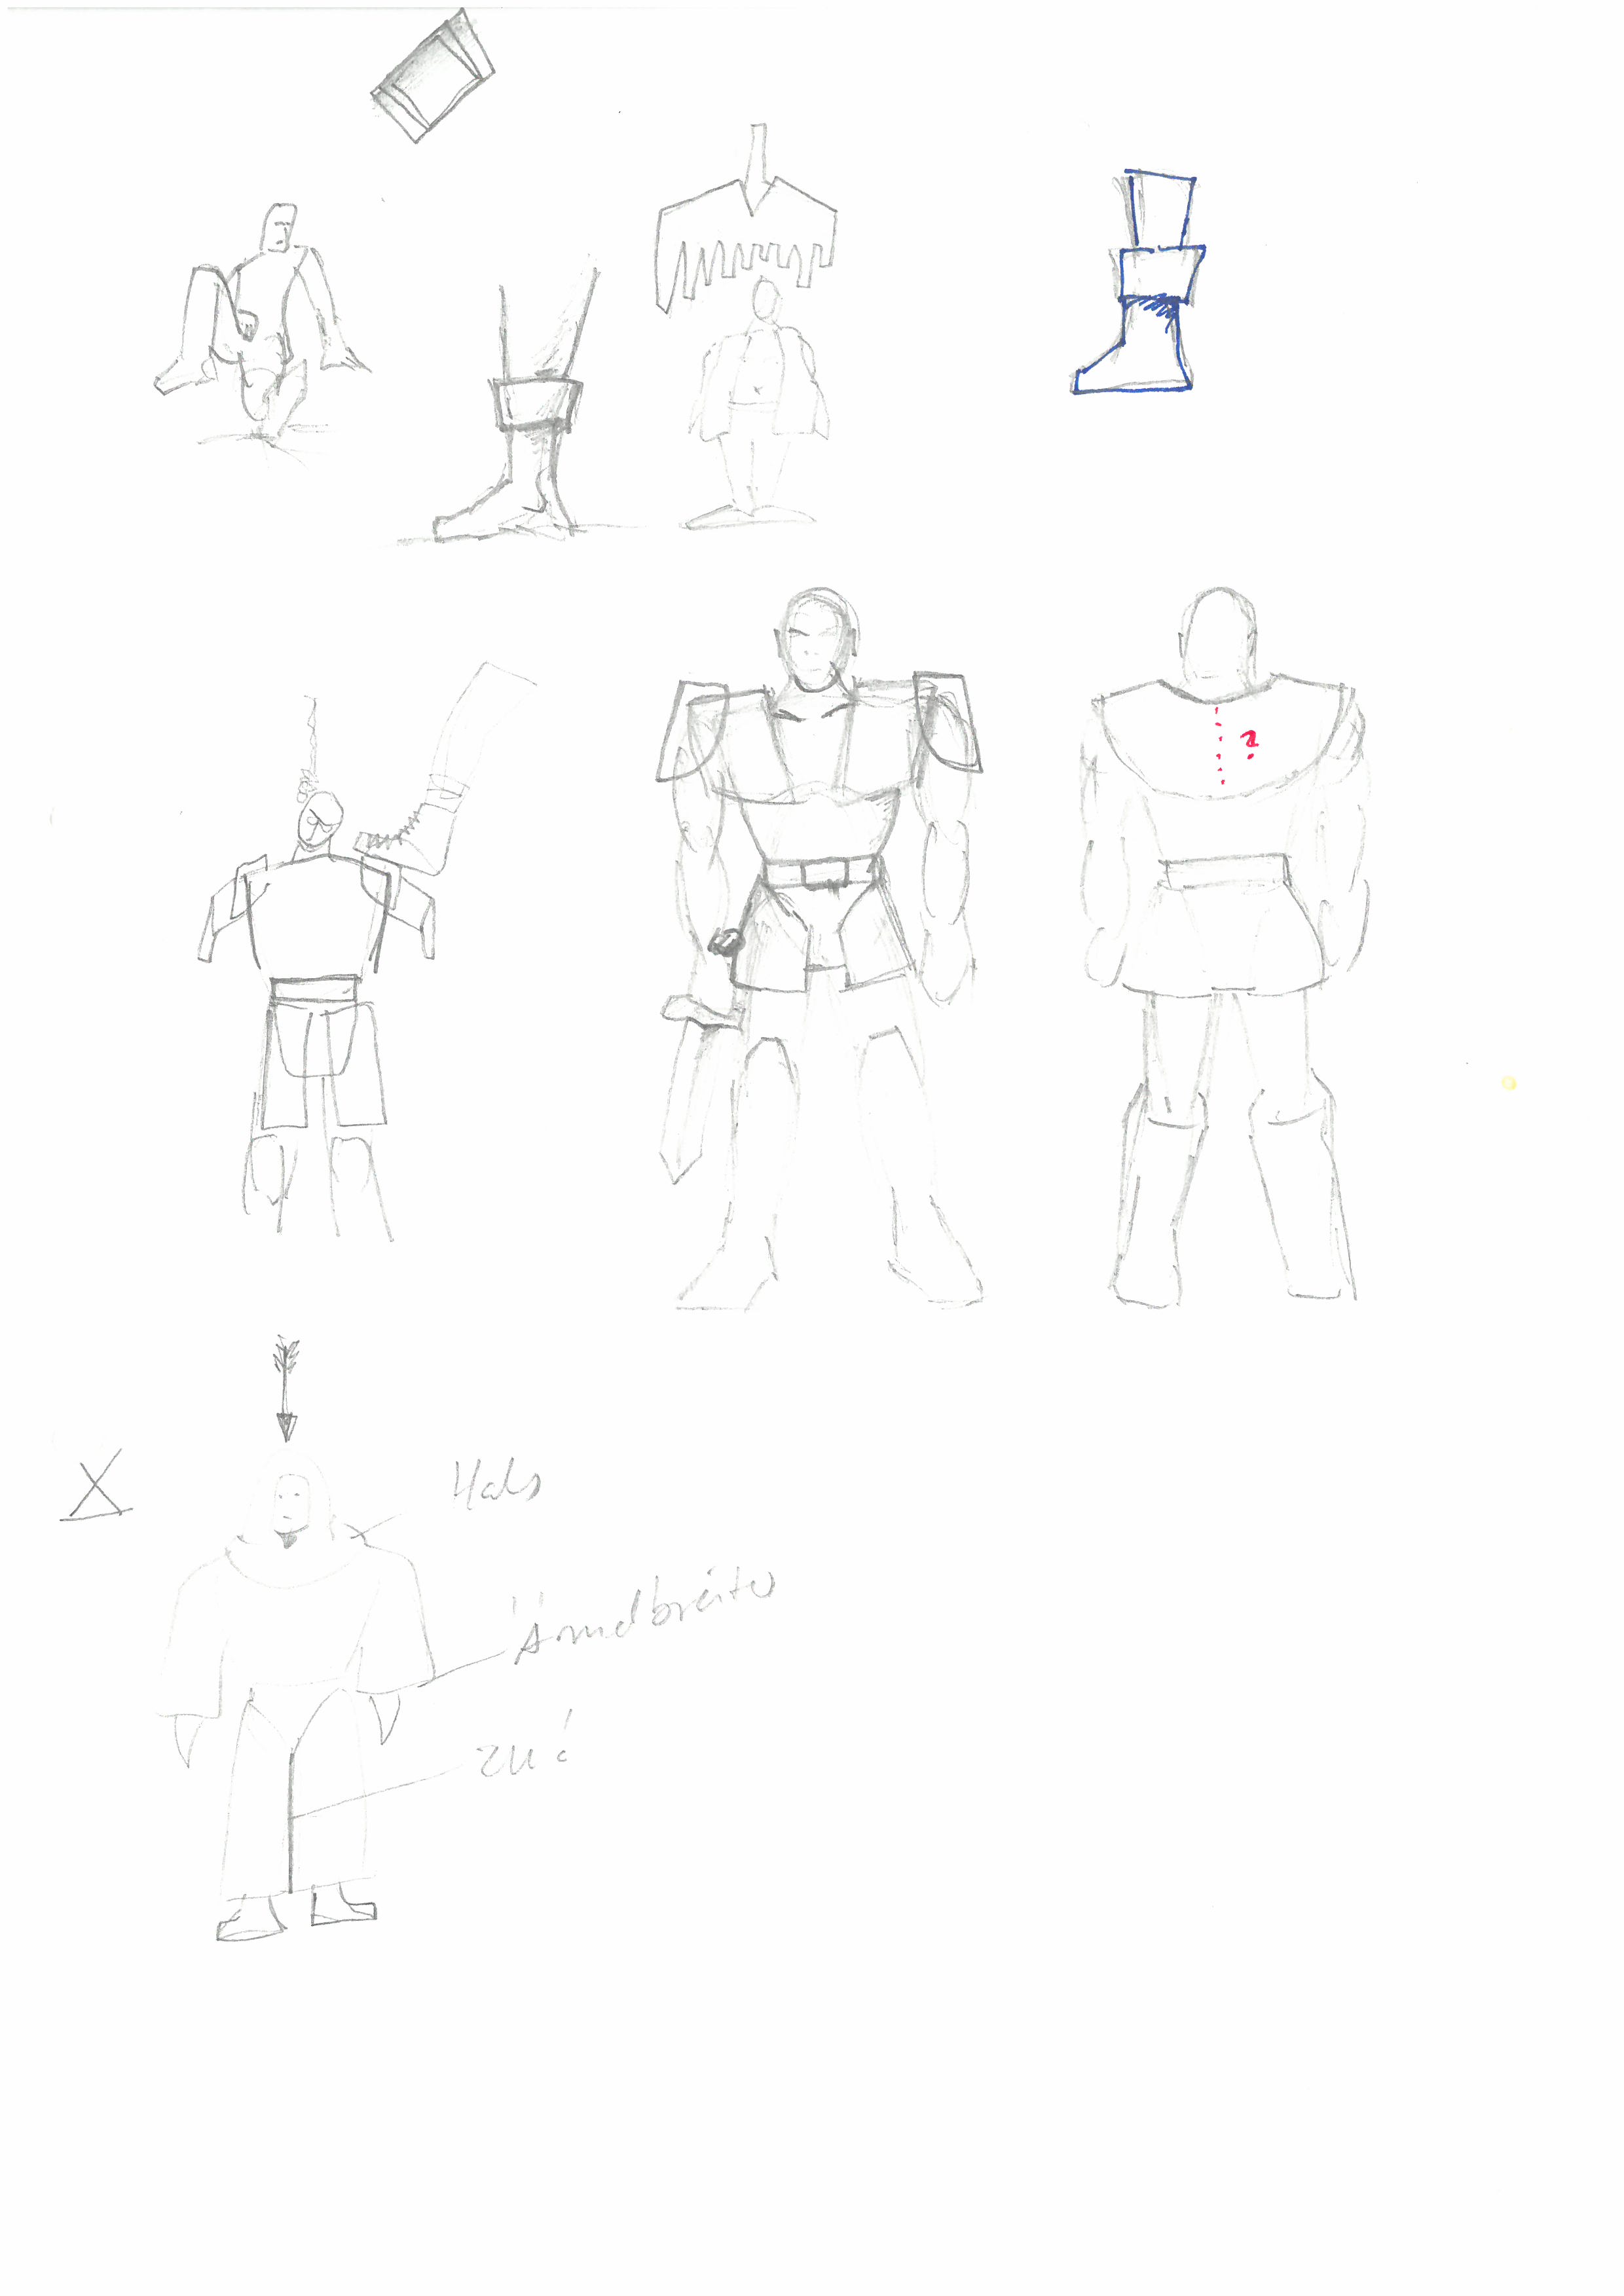 ?
X
Hals
Ärmelbreite
zu?